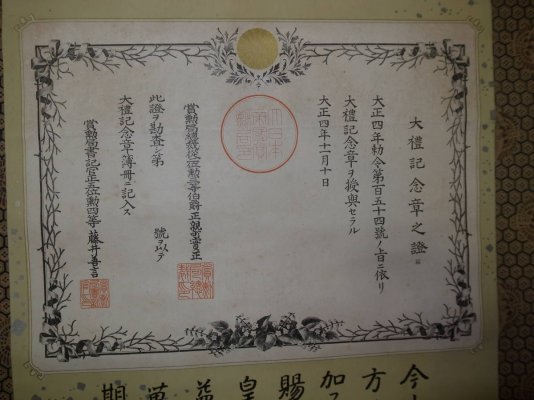 大禮記念章之證
大正四年勅令第百五十四號ノ旨ニ依リ
大禮記念章ヲ授與セラル
大正四年十一月十日
大日本
帝國賞
勲局印
賞勲局總裁從二位勲一等伯爵正親町實正
此證ヲ勘査シ第 號ヲ以テ
大禮記念章簿冊ニ記入ス
賞勲局書記官正五位勲四等藤井善言
今
方
加
賜
皇
益
萬
期